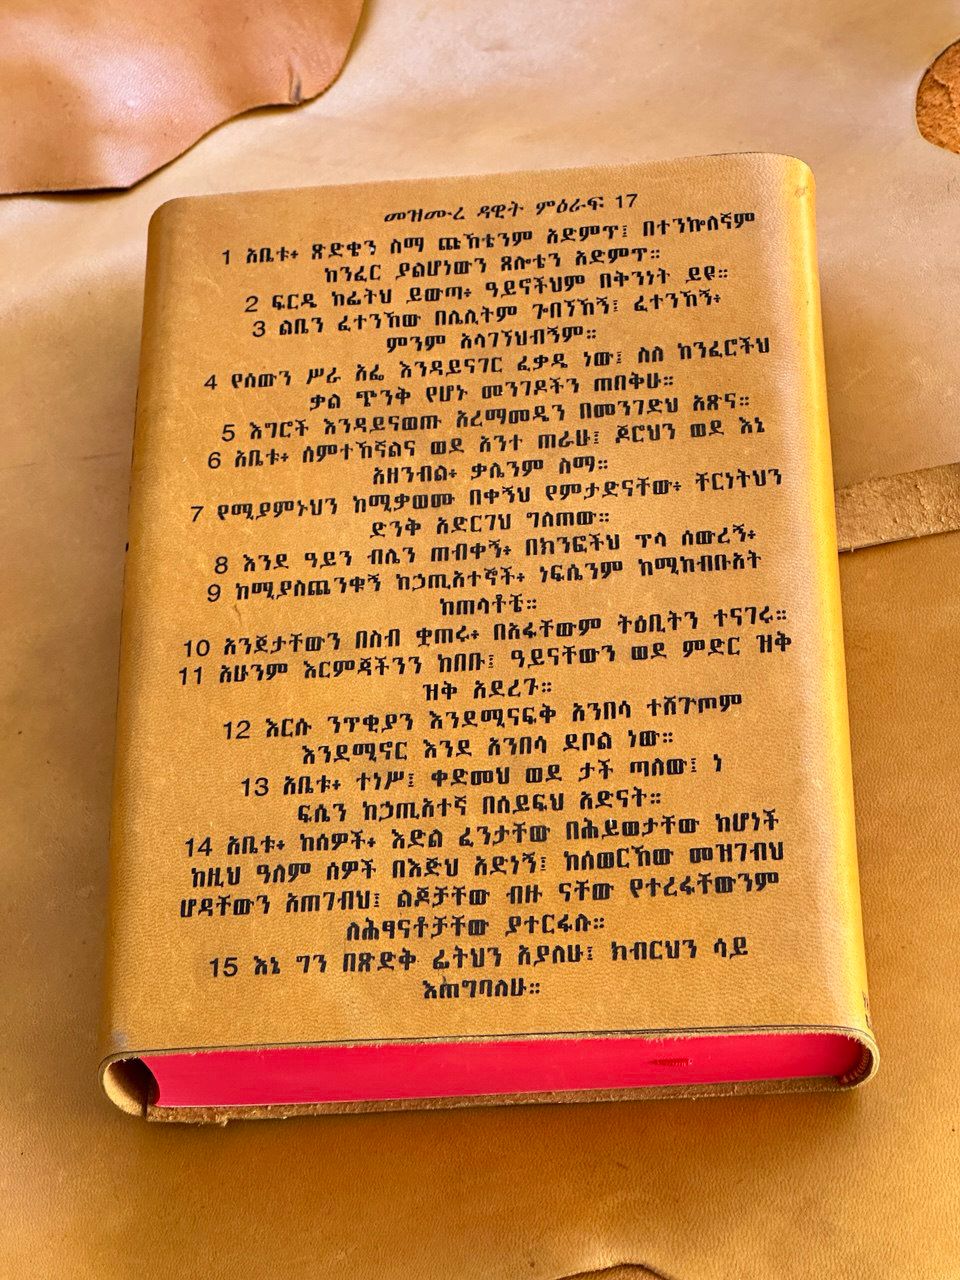 መዝሙረ ዳዊት ምዕራፍ 17
1 አቤቱ፥ ጽድቄን ስማ ጩኸቴንም አድምጥ፤ በተንኰለኛም
ከንፈር ያልሆነውን ጸሎቴን አድምጥ።
2 ፍርዴ ከፊትህ ይውጣ፥ ዓይኖችህም በቅንነት ይዩ።
3 ልቤን ፈተንኸው በሌሊትም ጐበኘኸኝ፤ ፈተንኸኝ፥
ምንም አላገኘህብኝም።
4 የሰውን ሥራ አፌ እንዳይናገር ፈቃዴ ነው፤ ስለ ከንፈሮችህ
ቃል ጭንቅ የሆኑ መንገዶችን ጠበቅሁ።
5 እግሮች እንዳይናወጡ አረማመዴን በመንገድህ አጽና።
6 አቤቱ፥ ሰምተኸኛልና ወደ አንተ ጠራሁ፤ ጆሮህን ወደ እኔ
አዘንብል፥ ቃሌንም ስማ።
7 የሚያምኑህን ከሚቃወሙ በቀኝህ የምታድናቸው፥ ቸርነትህን
ድንቅ አድርገህ ግለጠው።
8 እንደ ዓይን ብሌን ጠብቀኝ፥ በክንፎችህ ጥላ ሰውረኝ፥
9 ከሚያስጨንቁኝ ከኃጢአተኞች፥ ነፍሴንም ከሚከብቡአት
ከጠላቶቼ።
10 አንጀታቸውን በስብ ቋጠሩ፥ በአፋቸውም ትዕቢትን ተናገሩ።
11 አሁንም እርምጃችንን ከበቡ፤ ዓይናቸውን ወደ ምድር ዝቅ
ዝቅ አደረጉ።
12 እርሱ ንጥቂያን እንደሚናፍቅ አንበሳ ተሸጉጦም
እንደሚኖር እንደ አንበሳ ደቦል ነው።
13 አቤቱ፥ ተነሥ፤ ቀድመህ ወደ ታች ጣለው፤ ነ
ፍሴን ከኃጢአተኛ በሰይፍህ አድናት።
14 አቤቱ፥ ከሰዎች፥ እድል ፈንታቸው በሕይወታቸው ከሆነች
ከዚህ ዓለም ሰዎች በእጅህ አድነኝ፤ ከሰወርኸው መዝገብህ
ሆዳቸውን አጠገብህ፤ ልጆቻቸው ብዙ ናቸው የተረፋቸውንም
ለሕፃናቶቻቸው ያተርፋሉ።
15 እኔ ግን በጽድቅ ፊትህን አያለሁ፤ ክብርህን ሳይ
እጠግባለሁ።